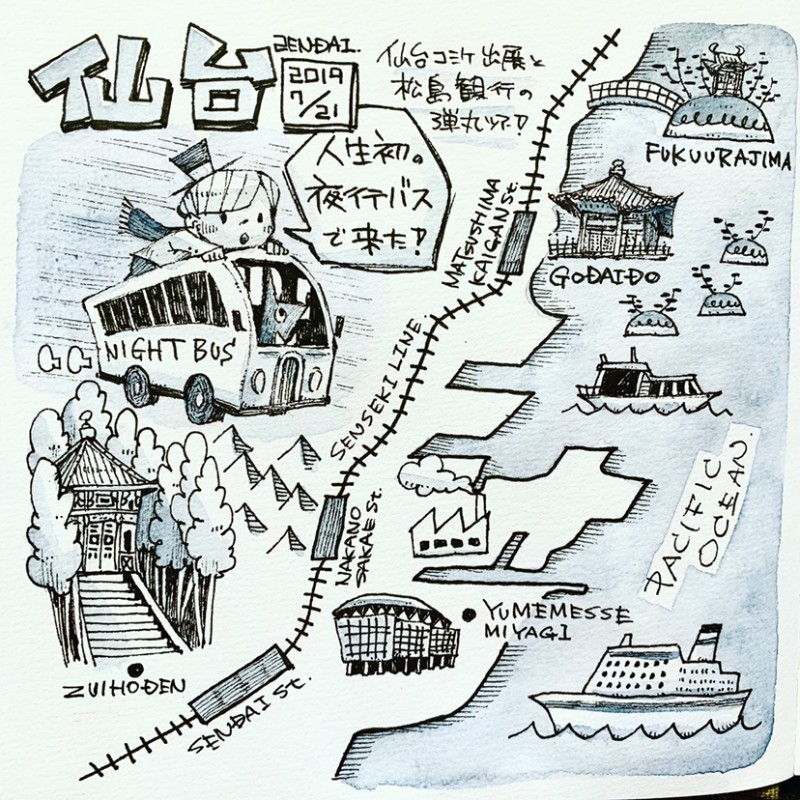 仙台
ZENDAI.
2019
7/21
仙台コミケ出展と
松島観行の
弾丸ツアー?
人生初の
夜行バスで
来た?
NIGHT BUS
FUKUURAJIMA
MATSUSHIMA
KAIGAN St.
GODAIDO
SENSEKI LINE.
NAKANO
SAKAE St.
PACIFIC
OCEAN.
YUMEMESSE
MIYAGI
ZUIHODEN
SENDAI St.